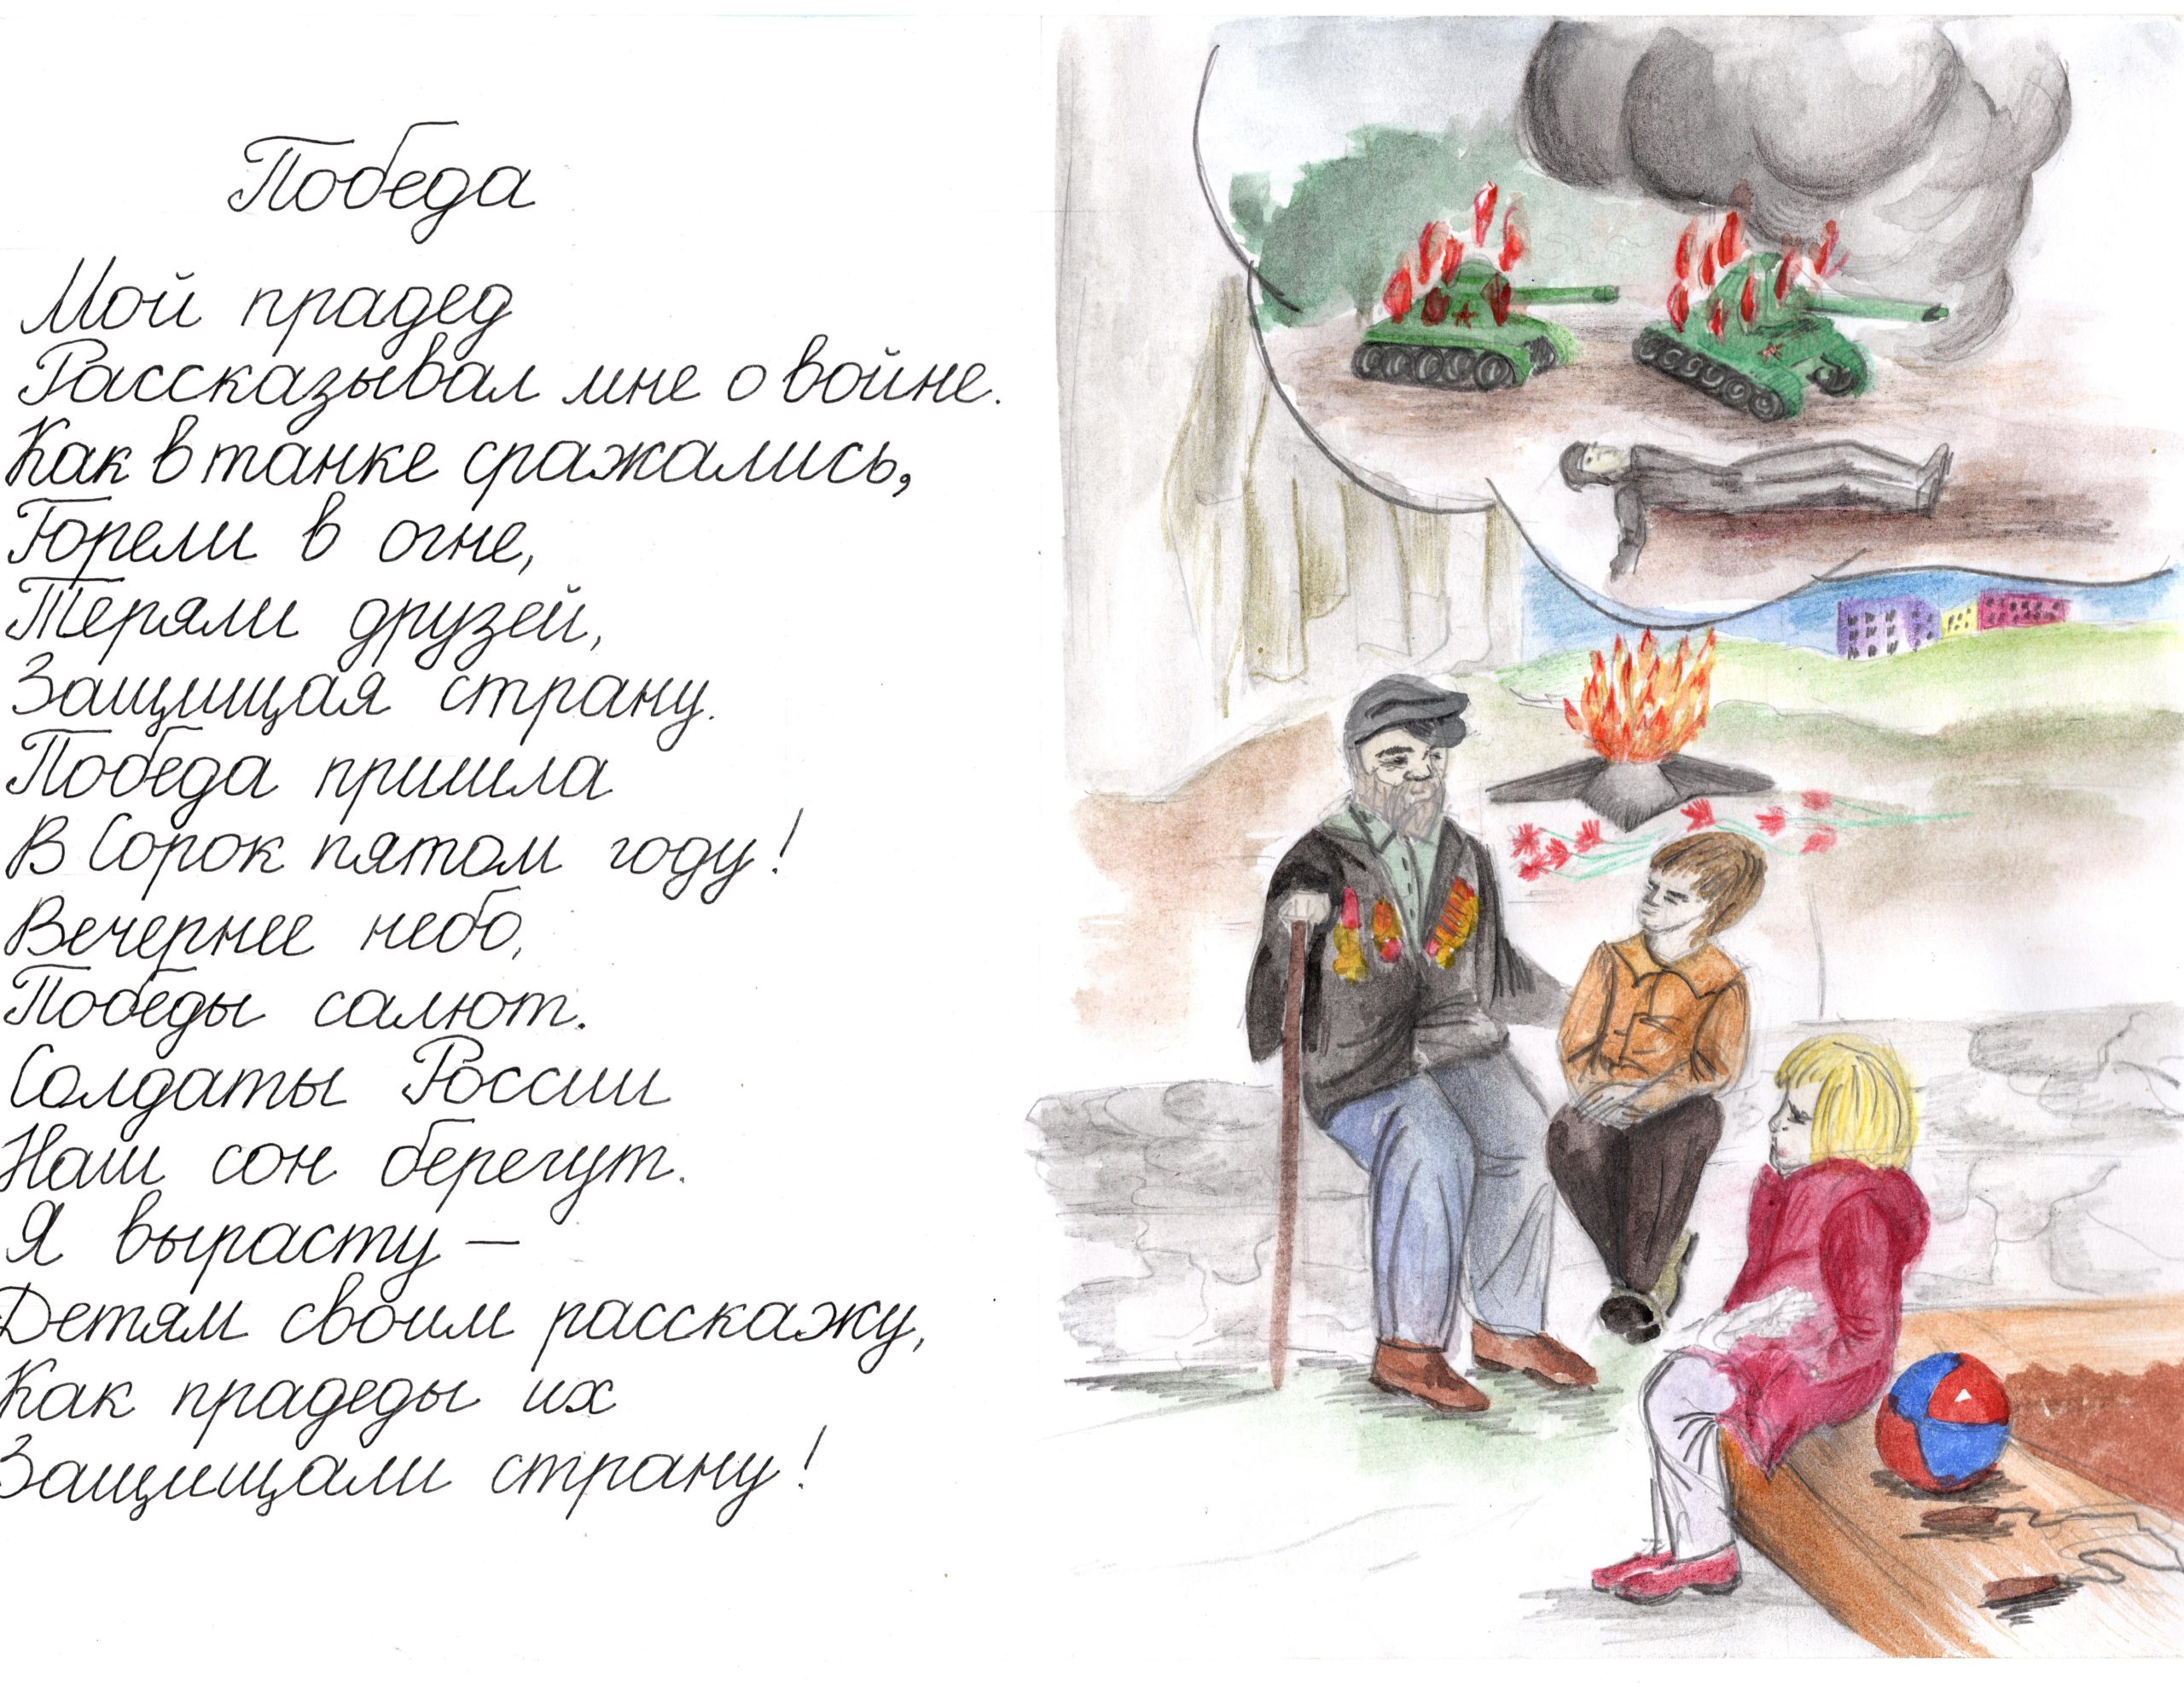 Победа
Мой прадед
Рассказывал мне о войне.
Как в танке сражались,
Горели в огне,
Теряли друзей,
Защищая страну.
Победа пришла
В Сорок пятом году!
Вечернее небо,
Победы салют.
Солдаты России
Наш сон берегут.
Я вырасту —
Детям своим расскажу,
Как прадеды их
Защищали страну!